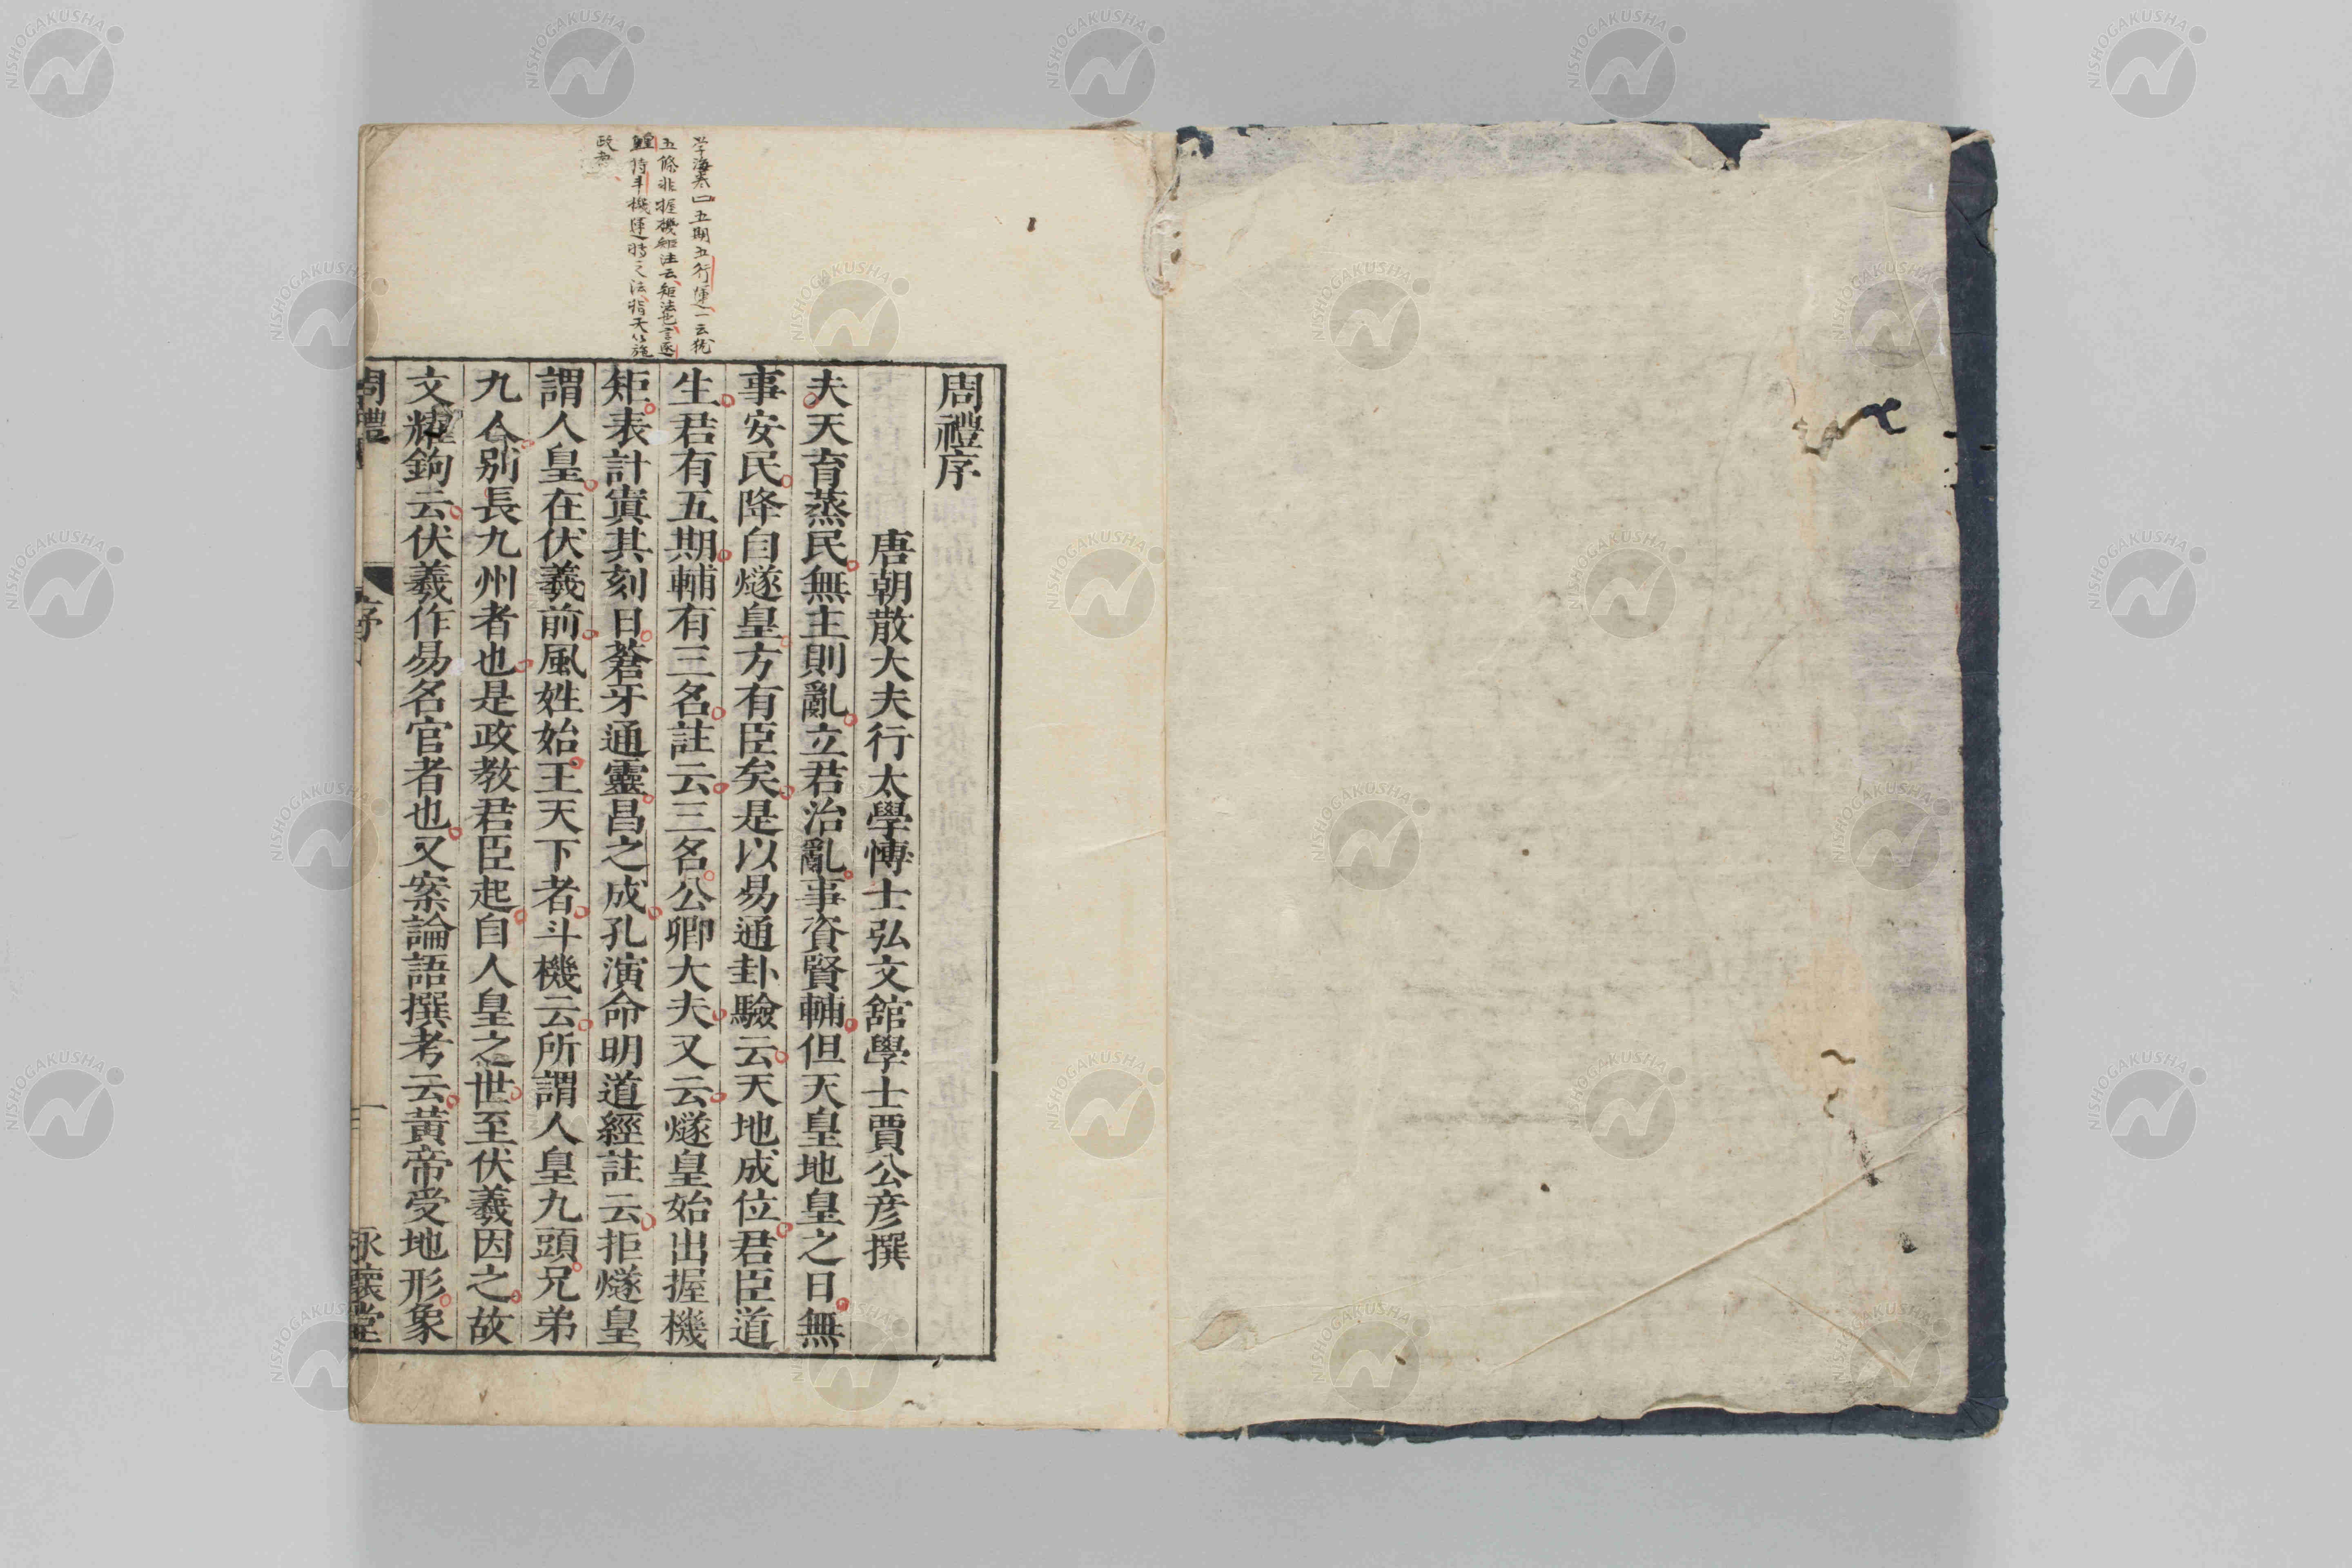 周禮序
唐朝散大夫行太學愽士弘文舘學士賈公彦撰
夫天育蒸民無主則亂立君治亂事資賢輔但天皇地皇之日無
事安民降自燧皇方有臣矣是以易通卦驗云天地成位君臣道
生君有五期輔有三名註云三名公卿大夫又云燧皇始出握機
矩表計寘其刻日蒼牙通靈昌之成孔演命明道經註云拒燧皇
謂人皇在伏羲前風姓始王天下者斗機云所謂人皇九頭兄弟
九人別長九州者也是政教君臣起自人皇之世至伏羲因之故
文耀鉤云伏羲作易名官者也又案論語撰考云黄帝受地形象
周禮 序 一 永懷堂
五期五行運一云
五條非握機矩注云矩法也言遂
持斗機運時之法指天以施
政教
NISHOGAKUSHA